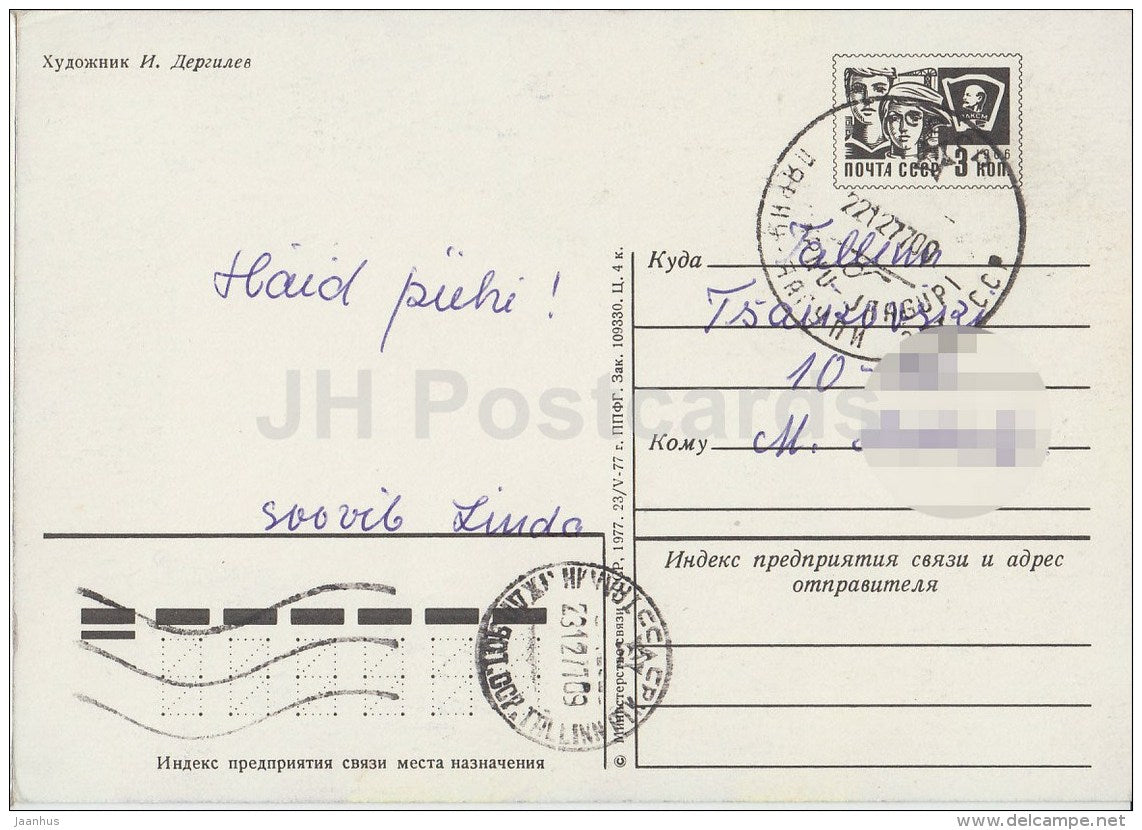 Художник И. Дергилев
ВЛКСМ
1966
ПОЧТА СССР 3 КОП
221277
PÄRNU-JAAGUPI
Häid pühi!
soovib Linda
Куда Tallinn
10-
Кому M.
Индекс предприятия связи и адрес
отправителя
© Министерство связи СССР, 1977. 23/V-77 г. ППФГ. Зак. 109330. Ц. 4 к.
23127709
TALLINN
Индекс предприятия связи места назначения
JH Postcards
Jaanhus
www.delcampe.net